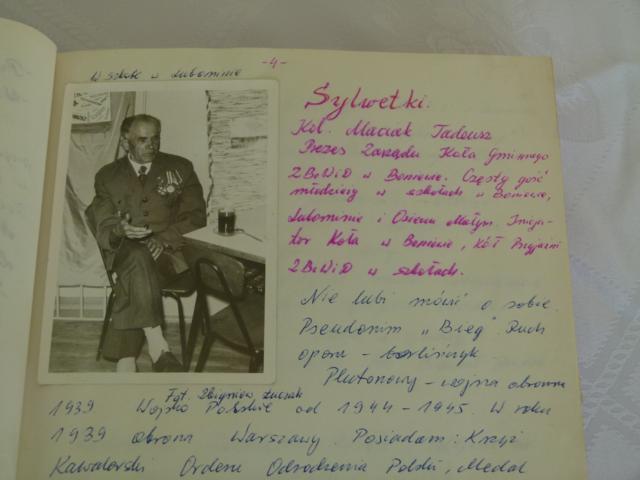 -4-
W szkole w Lubominie
Sylwetki.
Kol. Maciak Tadeusz
Prezes Zarządu Koła Gminnego
ZBoWiD w Boniewie. Częsty gość
młodzieży w szkołach w Boniewie,
Lubominie i Osieczu Małym. Inicja-
tor Koła w Boniewie, Kół Przyjaźni
ZBoWiD w szkołach.
Nie lubi mówić o sobie.
Pseudonim „Bieg". Ruch
oporu - berlińczyk
Plutonowy - wojna obronna
Fgt. Zbigniew Łuczak
1939 Wojsko Polskie od 1944-1945. W roku
1939 obrona Warszawy. Posiadam: Krzyż
Kawalerski Orderu Odrodzenia Polski, Medal